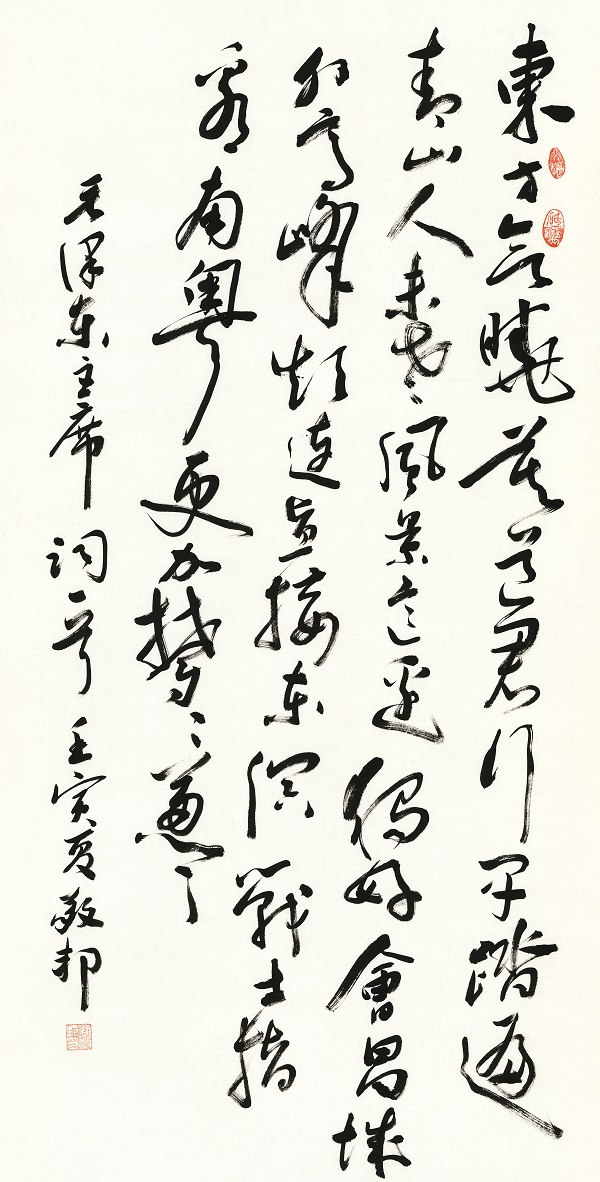 東方欲曉莫道君行早踏遍
青山人未老風景這邊獨好會昌城
外高峰顛連直接東溟戰士指
看南粵更加鬱々葱々
毛澤東主席詞一首 壬寅夏敬邦